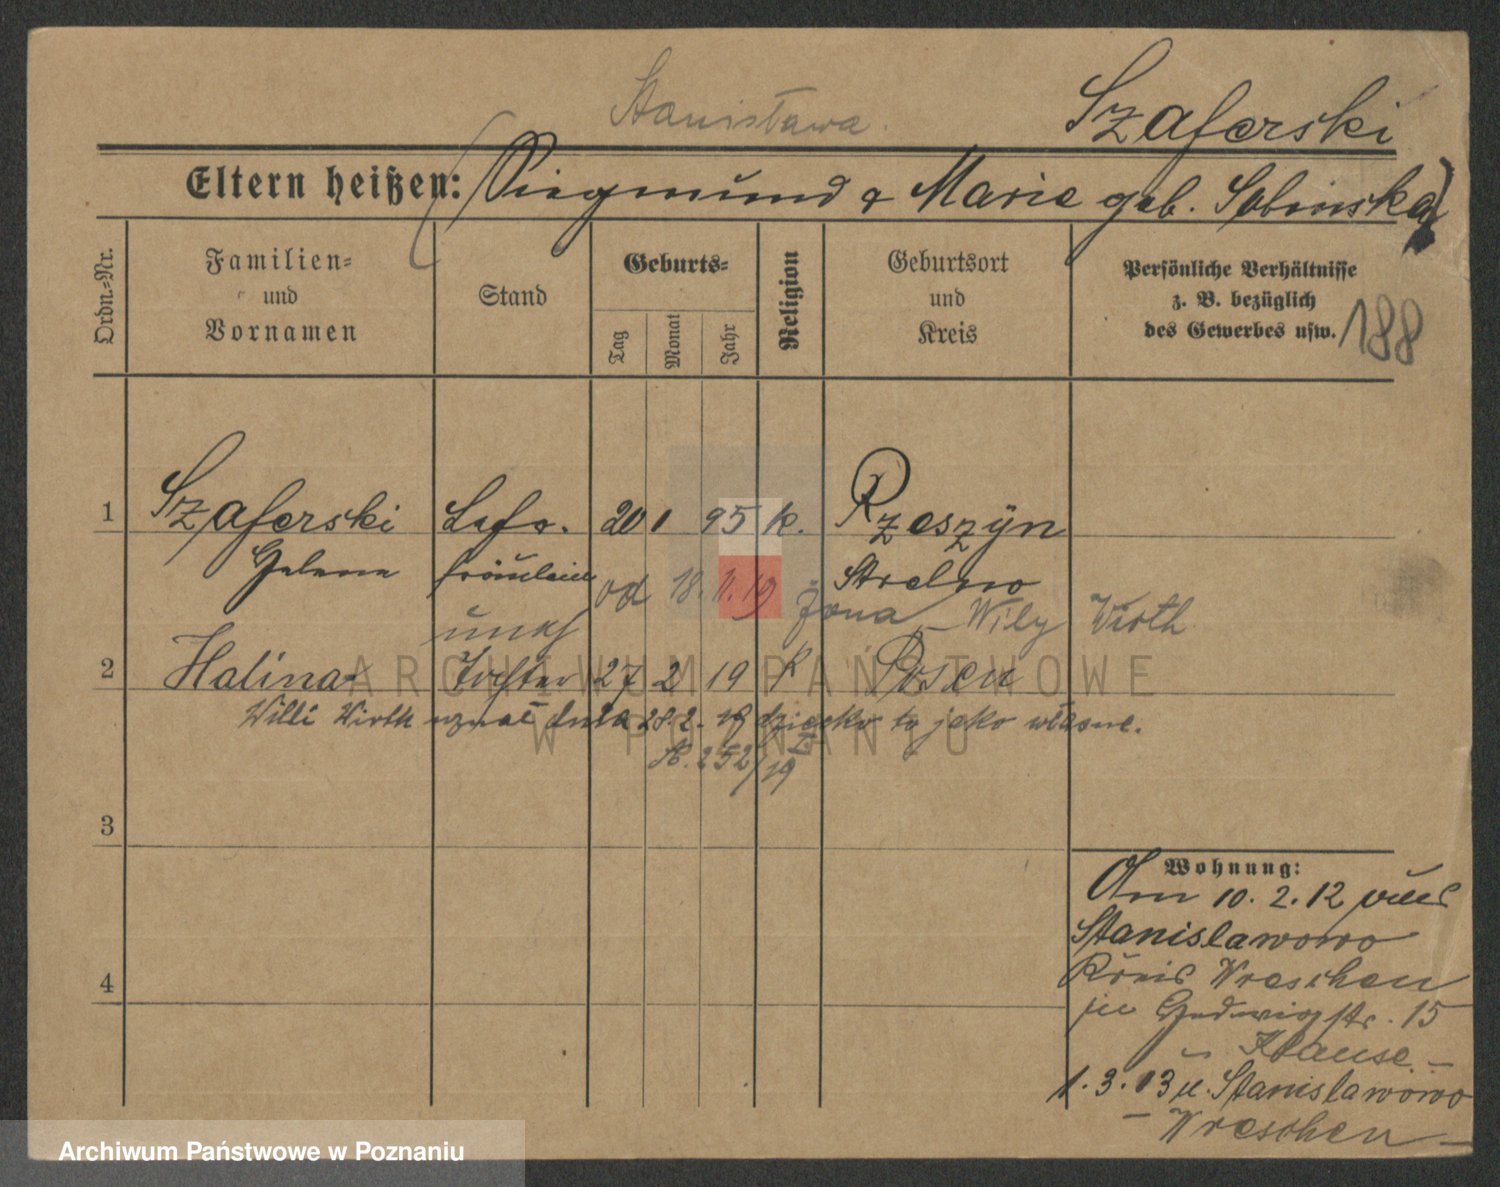 Stanisława
Szaferski
Eltern heißen: (Siegmund & Marie geb. Sobinska)
Ordn.-Nr.
Familien- und Vornamen
Stand
Geburts-
Tag
Monat
Jahr
Religion
Geburtsort und Kreis
Persönliche Verhältnisse
z. B. bezüglich
des Gewerbes usw.
188
1 Szaferski 20 1 95 k. Rzeszÿn
Helene fräulein Strelno
od 18.11.19 żona Wily Wirth
unehl
2 Halina Tochter 27 2 19 k Posen
Willi Wirth uznał dnia 28.2.19 dziecko to jako własne.
R. 252/19
3
4
Wohnung:
Am 10.2.12 aus
Stanislawowo
Kreis Wreschen
in Hedwigstr. 15
Krause
1.3.13 n. Stanislawowo
– Wreschen –
ARCHIWUM PAŃSTWOWE
W POZNANIU
Archiwum Państwowe w Poznaniu